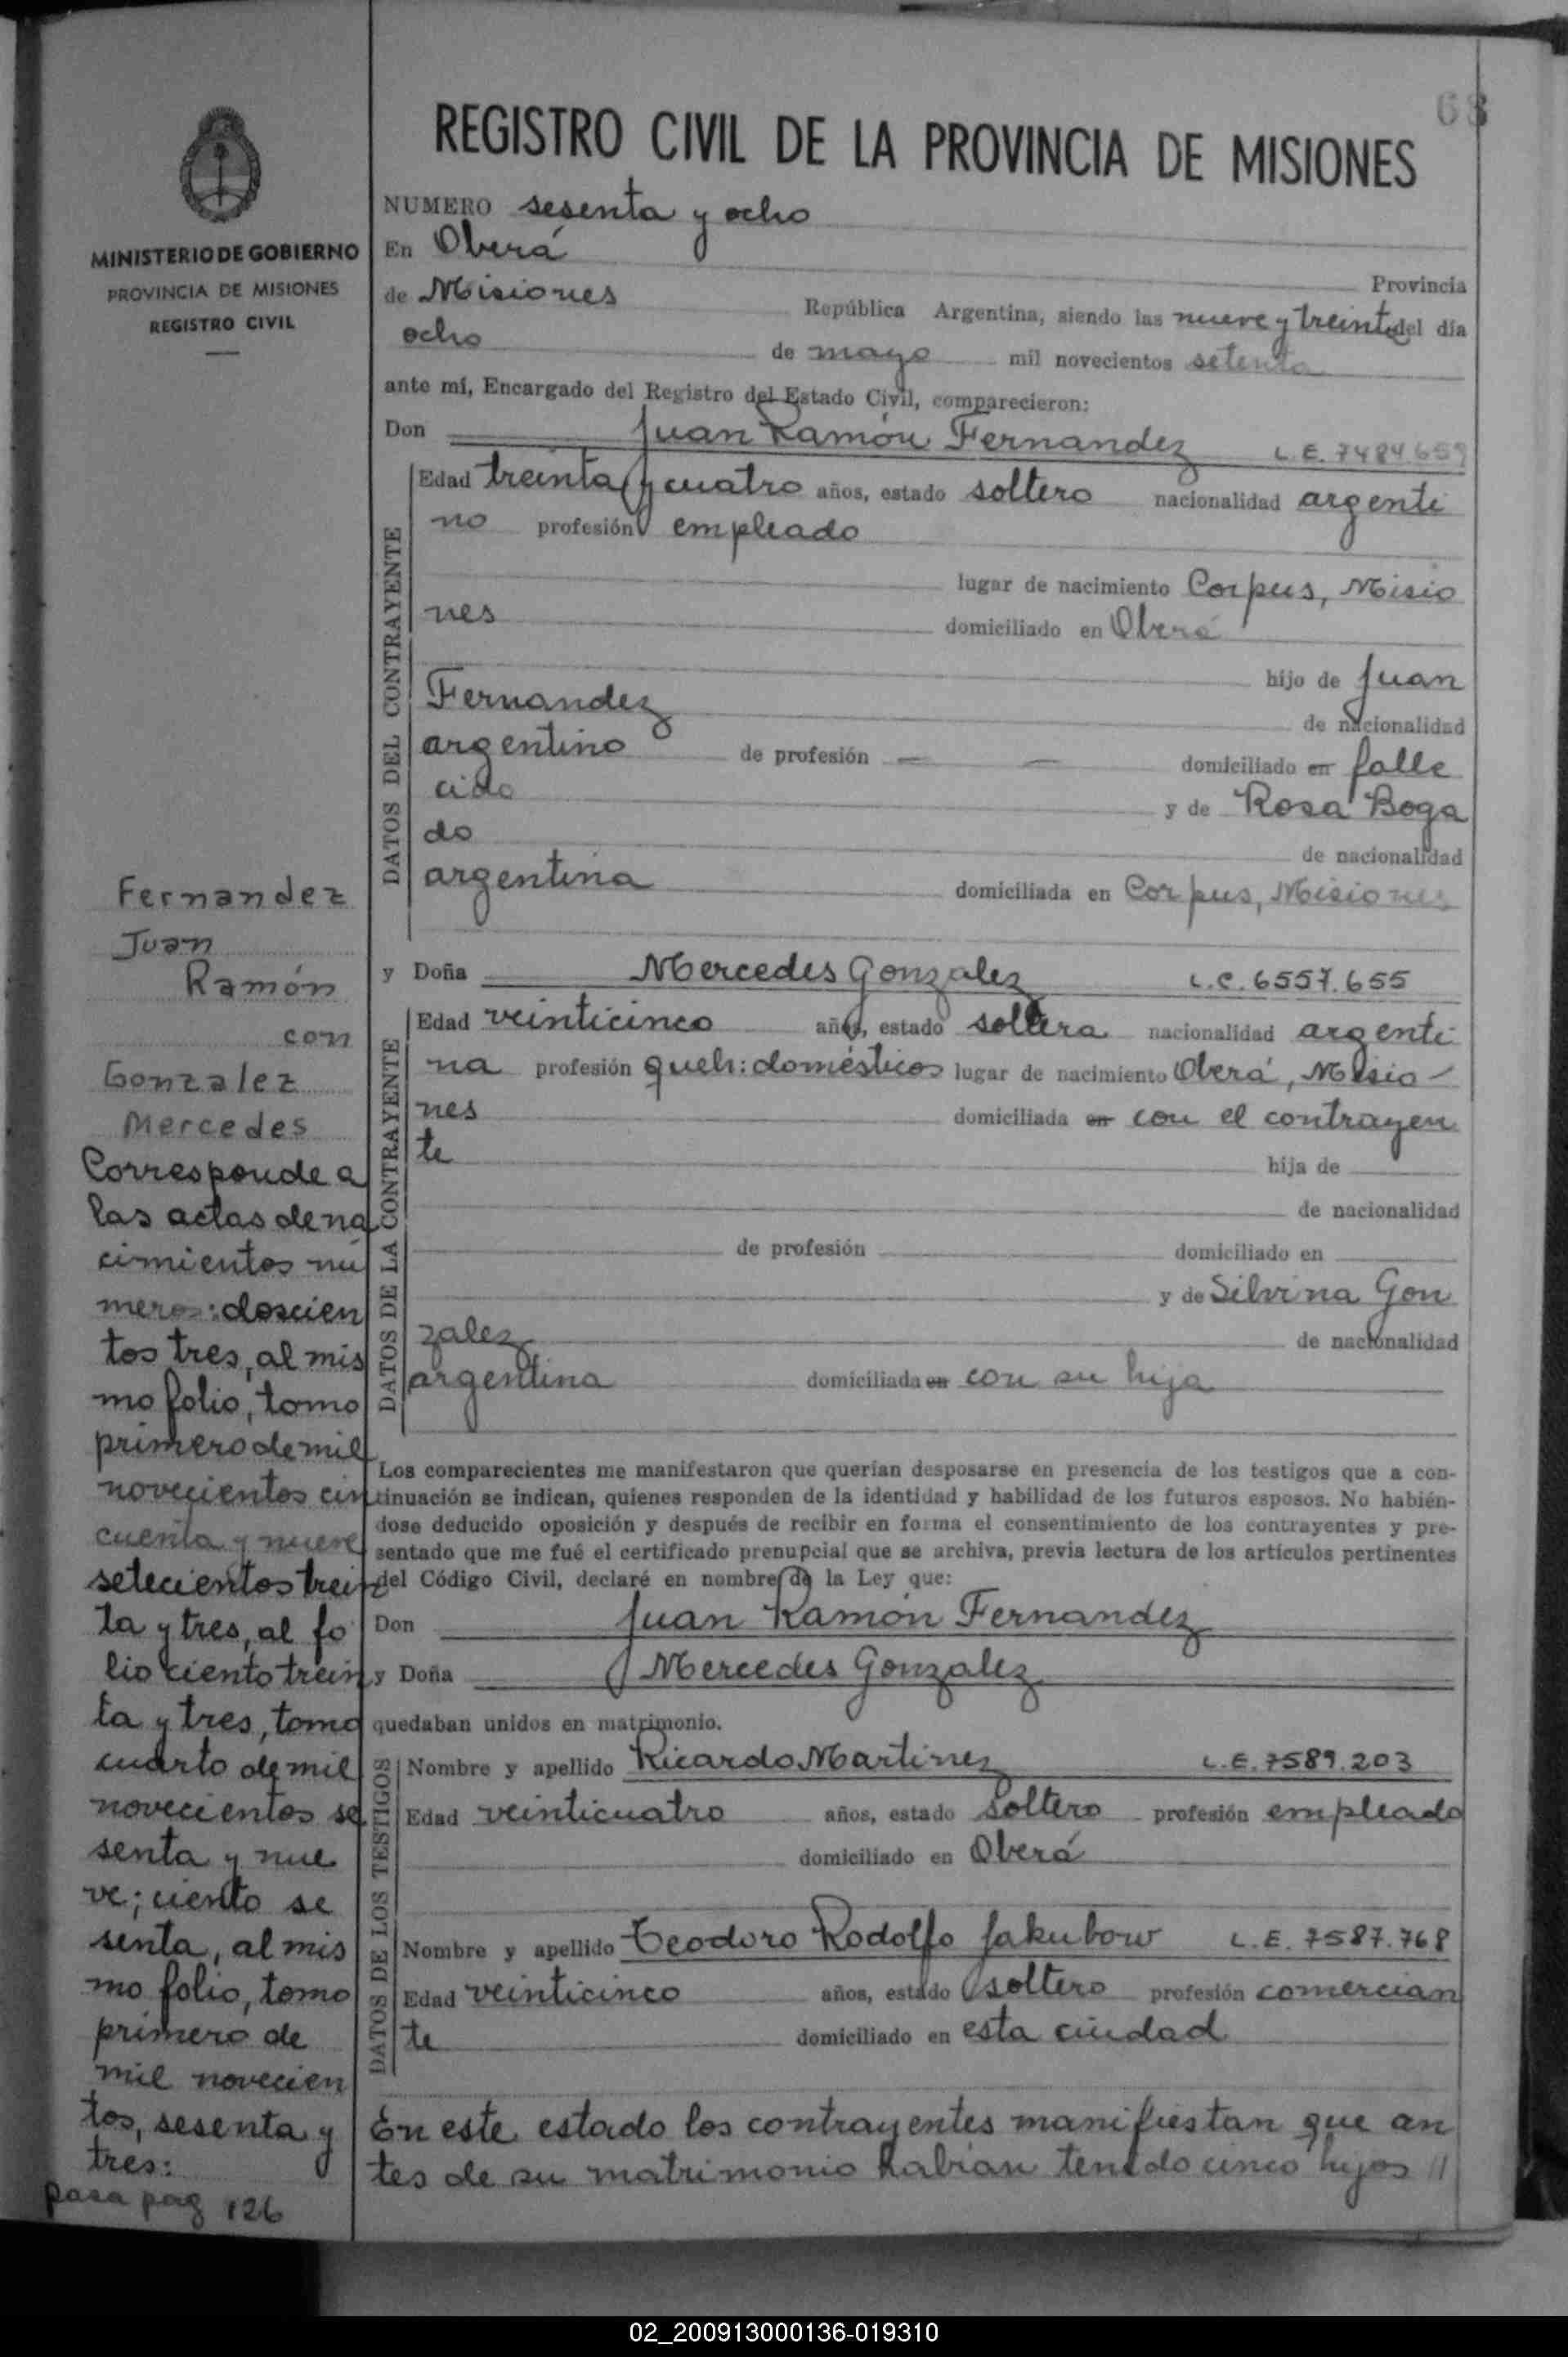 68
REGISTRO CIVIL DE LA PROVINCIA DE MISIONES
MINISTERIO DE GOBIERNO
PROVINCIA DE MISIONES
REGISTRO CIVIL
NUMERO sesenta y ocho
En Oberá
Provincia
de Misiones República Argentina, siendo las nueve y treinta del día
ocho de mayo mil novecientos setenta
ante mí, Encargado del Registro del Estado Civil, comparecieron:
Don Juan Ramón Fernandez L.E. 7484.659
DATOS DEL CONTRAYENTE
Edad treinta y cuatro años, estado soltero nacionalidad argenti
no profesión empleado
lugar de nacimiento Corpus, Misio
nes domiciliado en Oberá
hijo de Juan
Fernandez de nacionalidad
argentino de profesión — — domiciliado en falle
cido y de Rosa Boga
do de nacionalidad
argentina domiciliada en Corpus, Misiones
y Doña Mercedes Gonzalez L.C. 6557.655
DATOS DE LA CONTRAYENTE
Edad veinticinco años, estado soltera nacionalidad argenti
na profesión queh: domésticos lugar de nacimiento Oberá, Misio-
nes domiciliada en con el contrayen
te hija de
de nacionalidad
de profesión domiciliado en
y de Silvina Gon
zalez de nacionalidad
argentina domiciliada en con su hija
Los comparecientes me manifestaron que querían desposarse en presencia de los testigos que a con-
tinuación se indican, quienes responden de la identidad y habilidad de los futuros esposos. No habién-
dose deducido oposición y después de recibir en forma el consentimiento de los contrayentes y pre-
sentado que me fué el certificado prenupcial que se archiva, previa lectura de los artículos pertinentes
del Código Civil, declaré en nombre de la Ley que:
Don Juan Ramón Fernandez
y Doña Mercedes Gonzalez
quedaban unidos en matrimonio.
DATOS DE LOS TESTIGOS
Nombre y apellido Ricardo Martinez L.E. 7589.203
Edad veinticuatro años, estado soltero profesión empleado
domiciliado en Oberá
Nombre y apellido Teodoro Rodolfo Jakubow L.E. 7587.768
Edad veinticinco años, estado soltero profesión comercian
te domiciliado en esta ciudad
En este estado los contrayentes manifiestan que an
tes de su matrimonio habían tenido cinco hijos //
Fernandez
Juan
Ramón
con
Gonzalez
Mercedes
Corresponde a
las actas de na
cimientos nú
meros: doscien
tos tres, al mis
mo folio, tomo
primero de mil
novecientos cin
cuenta y nueve
setecientos trein
ta y tres, al fo
lio ciento trein
ta y tres, tomo
cuarto de mil
novecientos se
senta y nue
ve; ciento se
senta, al mis
mo folio, tomo
primero de
mil novecien
tos, sesenta y
tres:
pasa pag 126
02_200913000136-019310